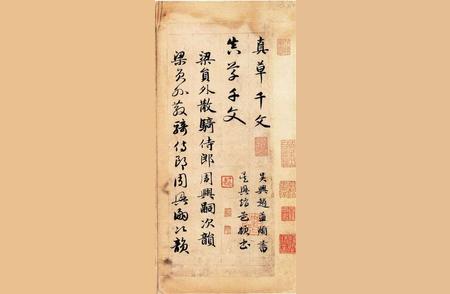 真草千文
真草千文
梁員外散騎侍郎周興嗣次韻
梁員外散騎侍郎周興嗣次韻
吳興趙孟頫書
吳興趙孟頫書